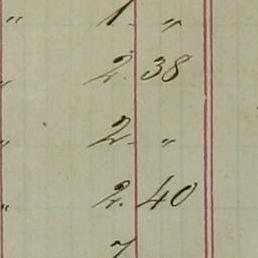 " 1. "
" 2. 38
" 2. "
" 2. 40